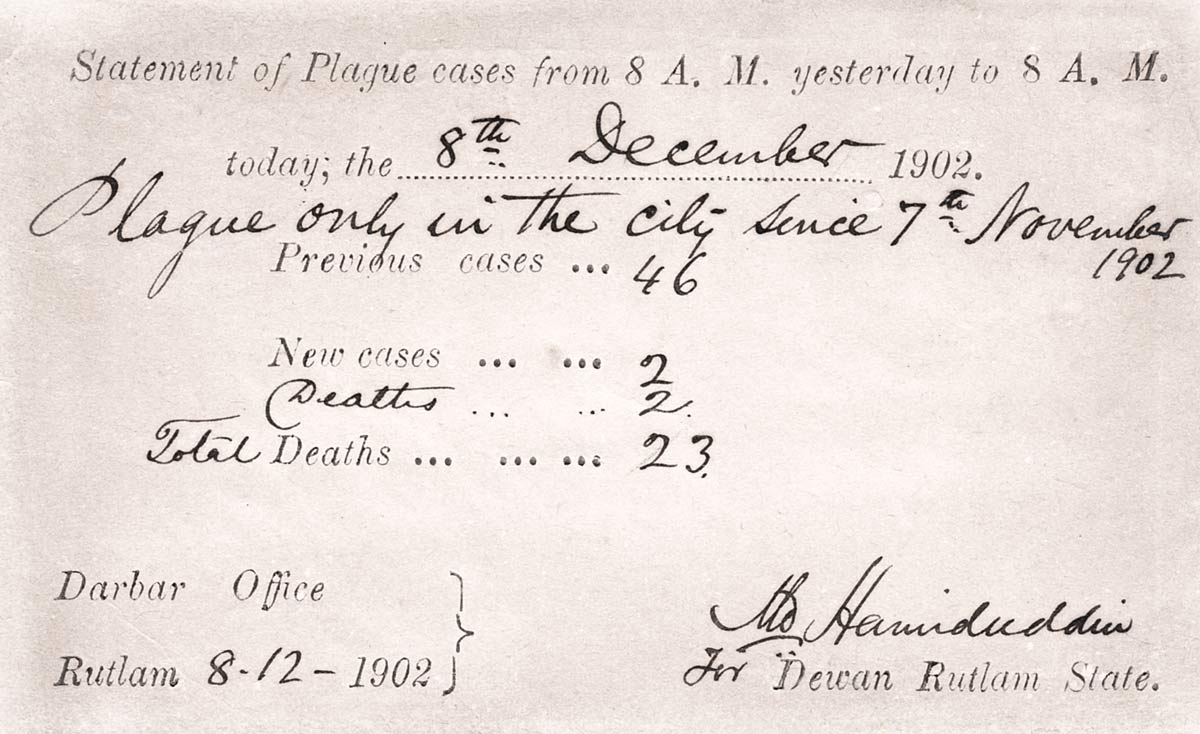 Statement of Plague cases from 8 A. M. yesterday to 8 A. M.
today; the 8th December 1902.
Plague only in the city since 7th November
1902
Previous cases ... 46
New cases ... ... 2
Deaths ... ... 2.
Total Deaths ... ... ... 23.
Darbar Office
Rutlam 8-12-1902
Md Hamiduddin
For Dewan Rutlam State.